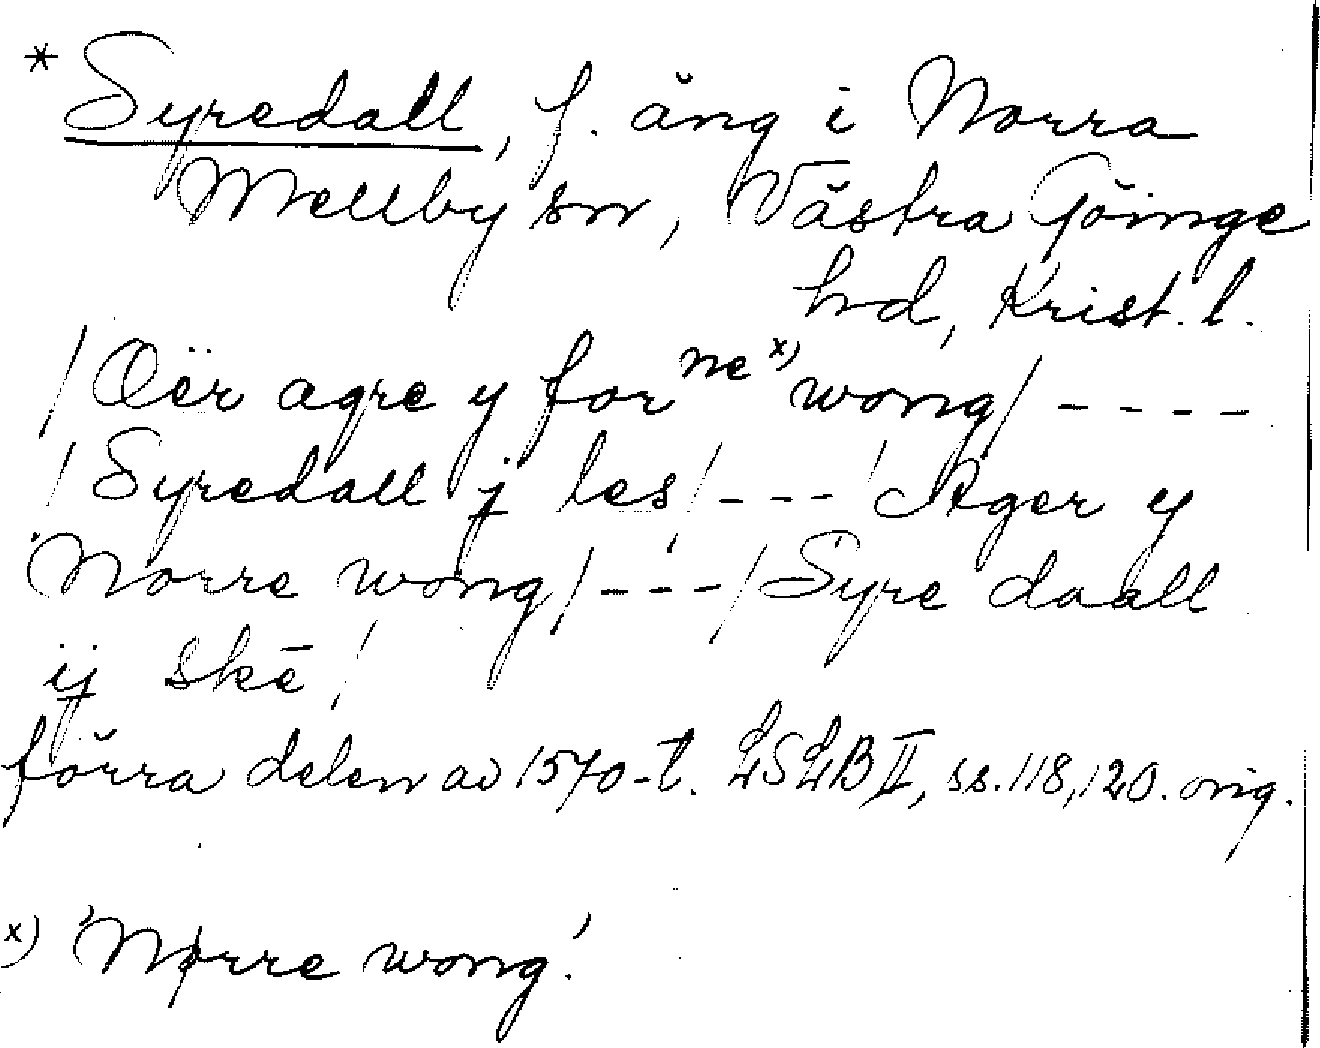 * Syredall, f. äng i Norra
Mellby sn, Västra Göinge
hd, Krist. l.
/ Öër agre y forne x) wong / - - - -
/ Syredall j les / - - - / Ager y
Norre wong / - - - / Syre daall
ij skē /
förra delen av 1570-t. LSLB II, ss. 118, 120. orig.
x) 'Nørre wong'.